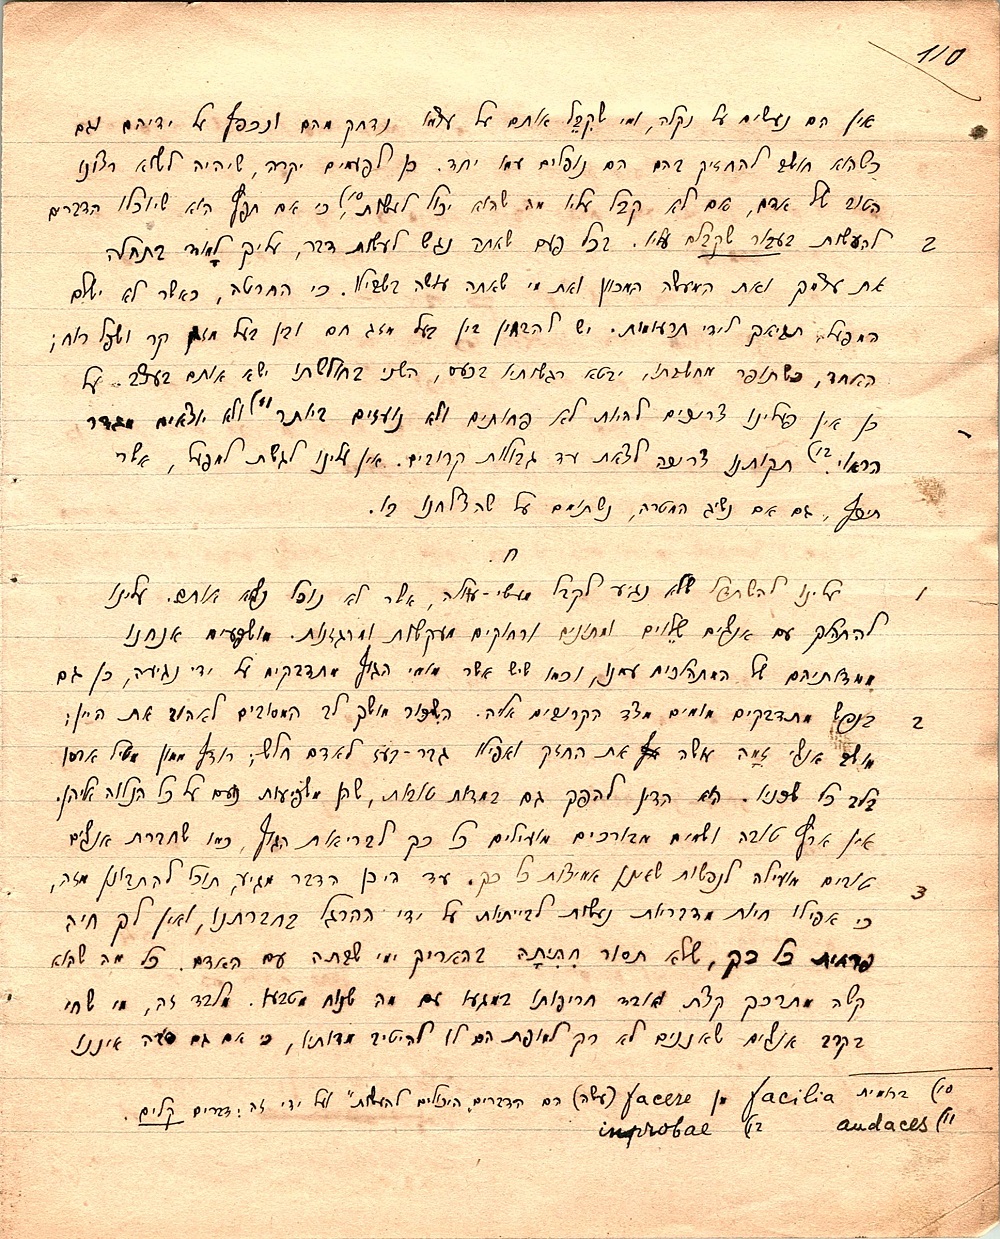 110
אין הם נעשים על נקלה, ומי שקבל אותם על עצמו נדחק מהם ונכפף על ידיהם וגם
כשהוא חושב להחזיק בהם הם נופלים עמו יחד. כן לפעמים יקרה, שיהיה לשוא רצונו
הטוב של אדם, אם לא קבל עליו מה שהוא יכול לעשות¹⁰), כי אם חפץ הוא שיוכלו הדברים
להעשות בעבור שקבלם עליו. בכל פעם שאתה נגש לעשות דבר, עליך לאמוד בתחלה 2
את עצמך ואת המעשה המכוון ואת מי שאתה עושה בשבילו. כי החרטה, כאשר לא ישלם
המפעל, תביאך לידי תרעומת. יש להבחין בין בעל מזג חם ובין בעל מזג קר ושפל רוח;
האחד, כשתופר מחשבתו, יבטא רגשותיו בכעס, השני בחולשתו ישא אותם בעצב. על
כן אין פעלינו צריכים להיות לא פחותים ולא נועזים ביותר¹¹) ולא יוצאים מגדר
הראוי¹²). תקותנו צריכה לצאת עד גבולות קרובים. אין עלינו לגשת למפעל, אשר
תיכף, גם אם נשיג המטרה, נשתומם על שהצלחנו בו.
ח.
עלינו להשתדל שלא נגיע לקבל מעשי-עולה, אשר לא נוכל נשוא אותם. עלינו 1
להתהלך עם אנשים שלוים ומתונים ורחוקים מעקשות ומרגזנות. מושפעים אנחנו
ממדותיהם של המתהלכים עמנו, וכמו שיש אשר מומי הגוף מתדבקים על ידי נגיעה, כן גם
בנפש מתדבקים מומים מצד הקרובים אליה. השכור מושך לב המסובים לאהוב את היין; 2
מושב אנשי זמה עושה את החזק ואפילו גבר-קעז לאדם חלש; רודף ממון מטיל ארסו
בלב כל שכניו. הוא הדין להפך גם במדות טובות, שהן משפיעות נועם על כל הנלוה אליהן.
אין ארץ טובה ושמים מבורכים מועילים כל כך לבריאות הגוף, כמו שחברת אנשים
טובים מועילה לנפשות שאינן אמיצות כל כך. עד היכן הדבר מגיע, תוכל להתבונן מזה, 3
כי אפילו חיות מדבריות נעשות לבייתיות על ידי ההרגל בחברתנו, ואין לך חיה
פראית כל כך, שלא תסור חתיתה בהאריך ימי שבתה עם האדם. כל מה שהוא
קשה מתרכך קצת ואובד חריפותו במגעו עם מה שנוח מטבעו. מלבד זה, מי שחי
בקרב אנשים שאננים לא רק למופת הם לו להיטיב מדותיו, כי אם גם סבה איננו
10) ברומית facilia מן facere (עשה) הם הדברים "היכולים להעשות" ועל ידי זה: דברים קלים.
11) audaces 12) improbae